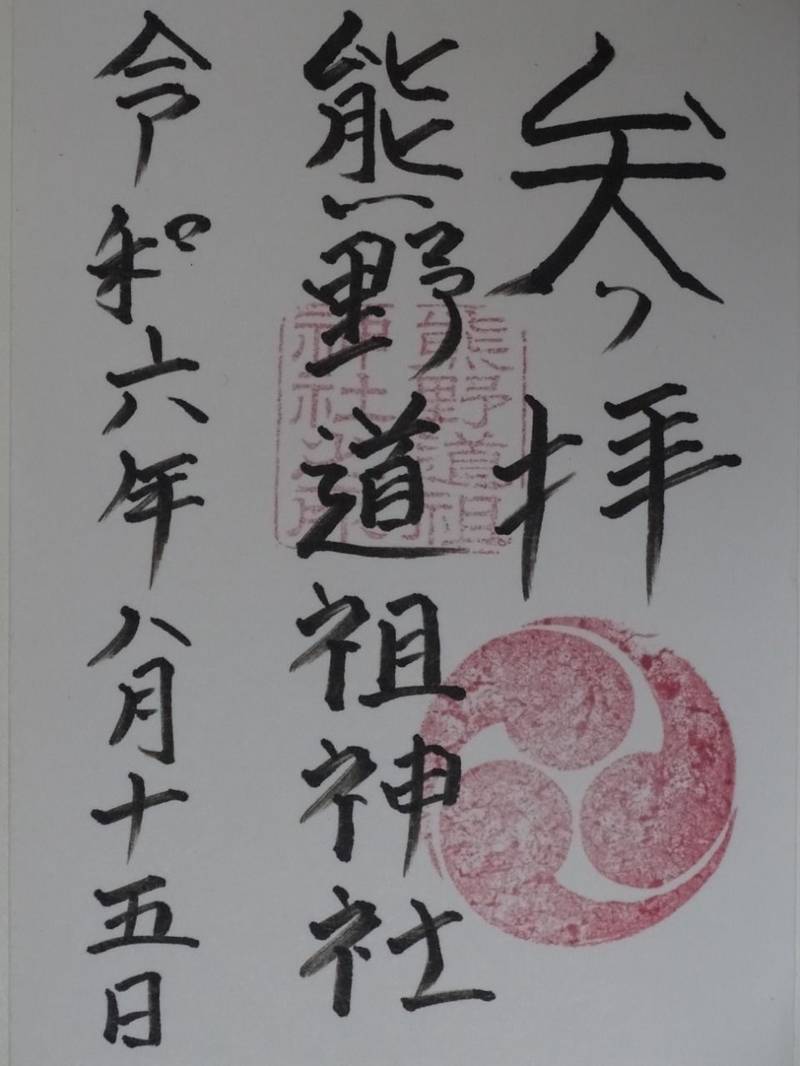 参拝
熊野道祖神社
令和六年八月十五日
熊野道祖
神社